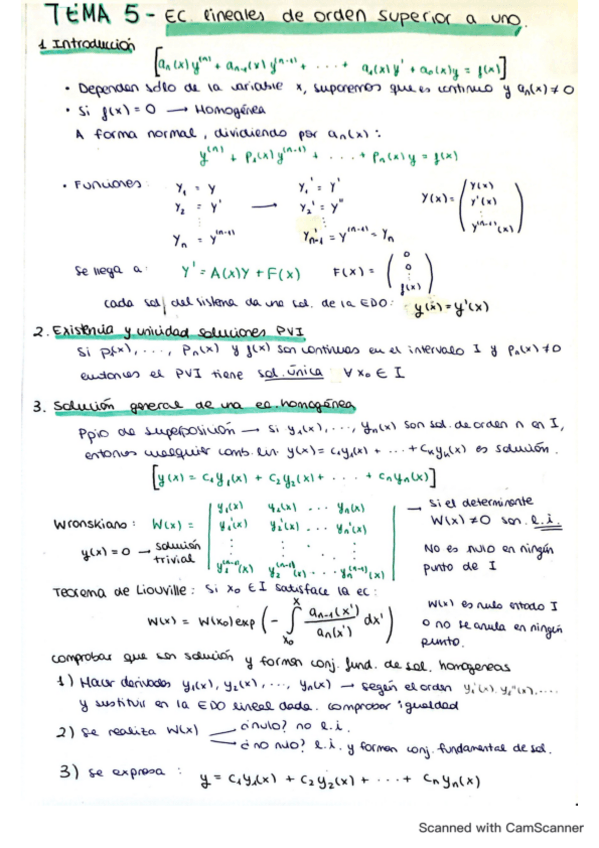 TEMA 5 - EC. lineales de orden superior a uno.
1 Introducción
[aₙ(x)y⁽ⁿ⁾ + aₙ₋₁(x)y⁽ⁿ⁻¹⁾ + ... + a₁(x)y' + a₀(x)y = f(x)]
• Dependen sólo de la variable x, suponemos que es continuo y aₙ(x) ≠ 0
• Si f(x) = 0 → Homogénea
A forma normal, dividiendo por aₙ(x):
y⁽ⁿ⁾ + P₁(x)y⁽ⁿ⁻¹⁾ + ... + Pₙ(x)y = f(x)
• Funciones: y₁ = y y₁' = y' Y(x) = ( y(x)
y₂ = y' → y₂' = y'' y'(x)
⋮ ⋮ ⋮
yₙ = y⁽ⁿ⁻¹⁾ y'ₙ₋₁ = y⁽ⁿ⁻¹⁾ = yₙ y⁽ⁿ⁻¹⁾(x) )
Se llega a: Y' = A(x)Y + F(x) F(x) = ( 0 0 ⋮ f(x) )
cada sol, del sistema da una sol. de la EDO: y(x) = y'(x)
2. Existencia y unicidad soluciones PVI
Si P(x), ..., Pₙ(x) y f(x) son continuas en el intervalo I y Pₙ(x) ≠ 0
entonces el PVI tiene sol. única ∀ x₀ ∈ I
3. Solución general de una ec. homogénea
Ppio de superposición → Si y₁(x), ..., yₙ(x) son sol. de orden n en I,
entonces cualquier comb. lin. y(x) = c₁y₁(x) + ... + cₙyₙ(x) es solución.
[y(x) = c₁y₁(x) + c₂y₂(x) + ... + cₙyₙ(x)]
Wronskiano: W(x) = | y₁(x) y₂(x) ... yₙ(x) | → Si el determinante
y₁'(x) y₂'(x) ... yₙ'(x) W(x) ≠ 0 son l.i.
y(x) = 0 → solución trivial
y₁⁽ⁿ⁻¹⁾(x) y₂⁽ⁿ⁻¹⁾(x) ... yₙ⁽ⁿ⁻¹⁾(x)
No es nulo en ningún
punto de I
Teorema de Liouville: Si x₀ ∈ I satisface la ec:
W(x) = W(x₀) exp ( - ∫ₓ₀ˣ aₙ₋₁(x')/aₙ(x') dx' )
W(x) es nulo en todo I
o no se anula en ningún
punto.
comprobar que son solución y forman conj. fund. de sol. homogeneas
1) Hacer derivadas y₁(x), y₂(x), ..., yₙ(x) → según el orden y₁'(x), y₁''(x), ....
y sustituir en la EDO lineal dada. comprobar igualdad
2) Se realiza W(x) ¿nulo? no l.i.
¿no nulo? l.i. y forman conj. fundamental de sol.
3) Se expresa: y = c₁y₁(x) + c₂y₂(x) + ... + cₙyₙ(x)
Scanned with CamScanner